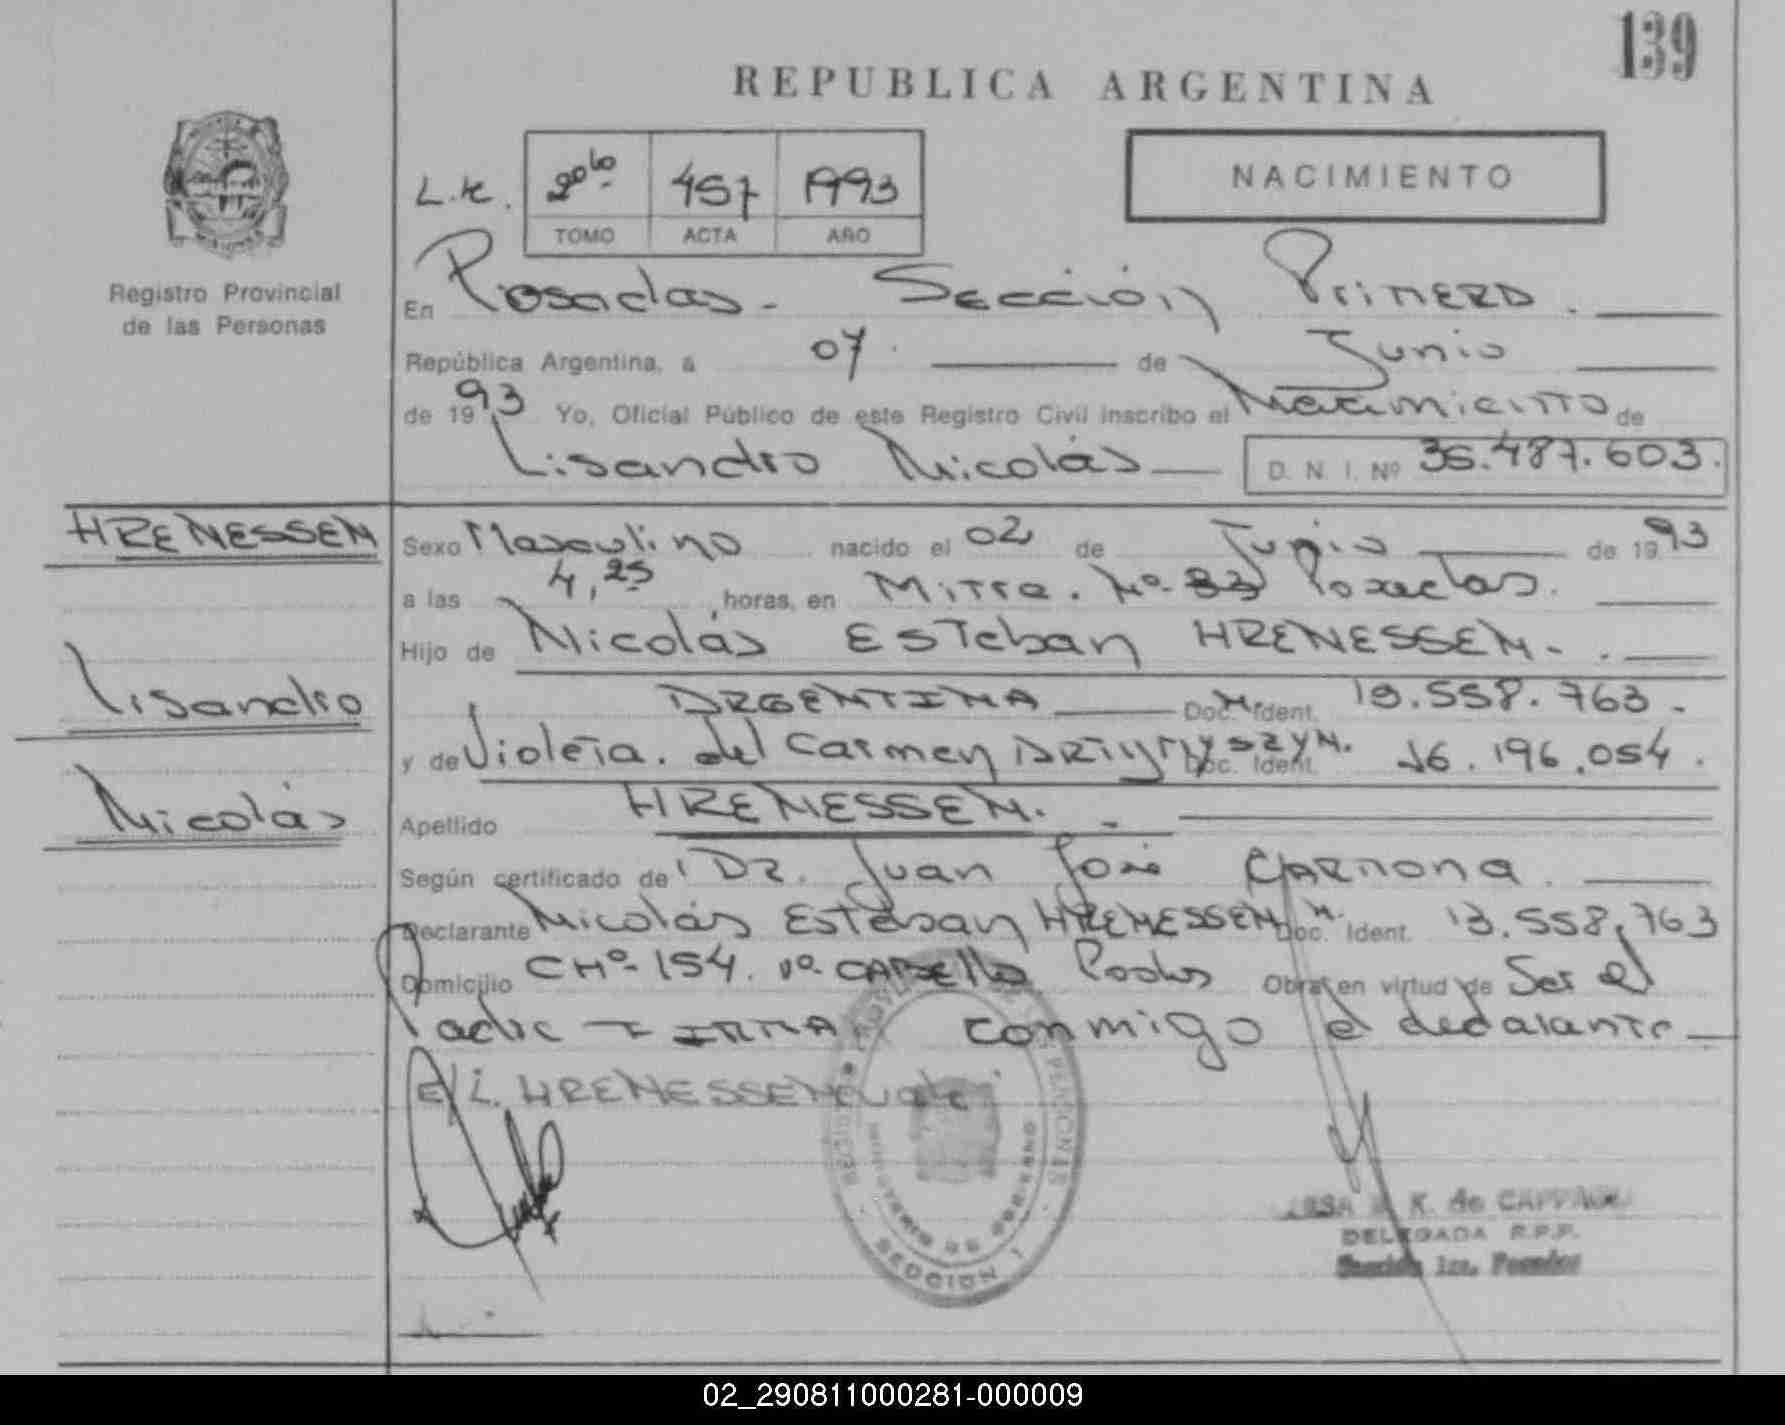 139
REPUBLICA ARGENTINA
NACIMIENTO
457 1993
TOMO ACTA AÑO
Registro Provincial
de las Personas
En Posadas - Sección Primera.
República Argentina, a 07 de Junio
de 1993 Yo, Oficial Público de este Registro Civil inscribo el Nacimiento de
Lisandro Nicolás D. N. I. Nº 36.487.603.
HRENESSEN
Sexo Masculino nacido el 02 de Junio de 1993
a las 4,25 horas, en Mitre. Nº 33 Posadas.
Hijo de Nicolás Esteban HRENESSEN.
Lisandro
ARGENTINA Doc. Ident. 13.558.763.
y de Violeta del Carmen Doc. Ident. 16.196.054.
Nicolás
Apellido HRENESSEN.
Según certificado de Dr. Juan José CARMONA.
Declarante Nicolás Esteban HRENESSEN Doc. Ident. 13.558.763
Domicilio CHº 154. Obra en virtud de Ser el
Padre FIRMA conmigo el declarante
E/L. HRENESSEN vale
K. de
DELEGADA R.P.P.
Sección 1ra. Posadas
MINISTERIO DE GOBIERNO
SECCION 1
02_290811000281-000009